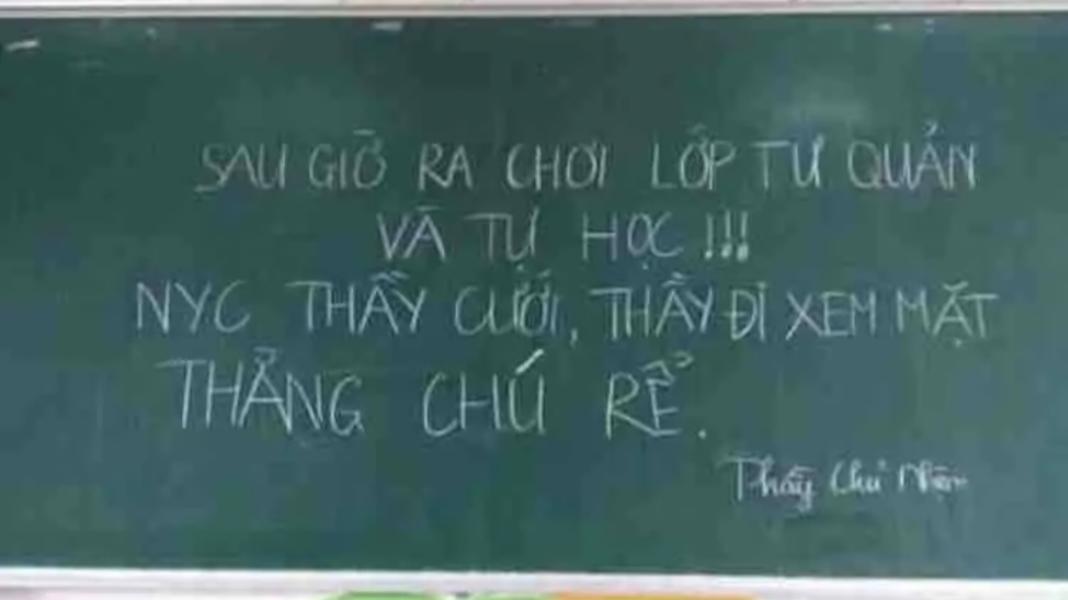 SAU GIỜ RA CHƠI LỚP TỰ QUẢN
VÀ TỰ HỌC !!!
NYC THẦY CƯỚI, THẦY ĐI XEM MẶT
THẰNG CHÚ RỂ.
Thầy Chủ Nhiệm